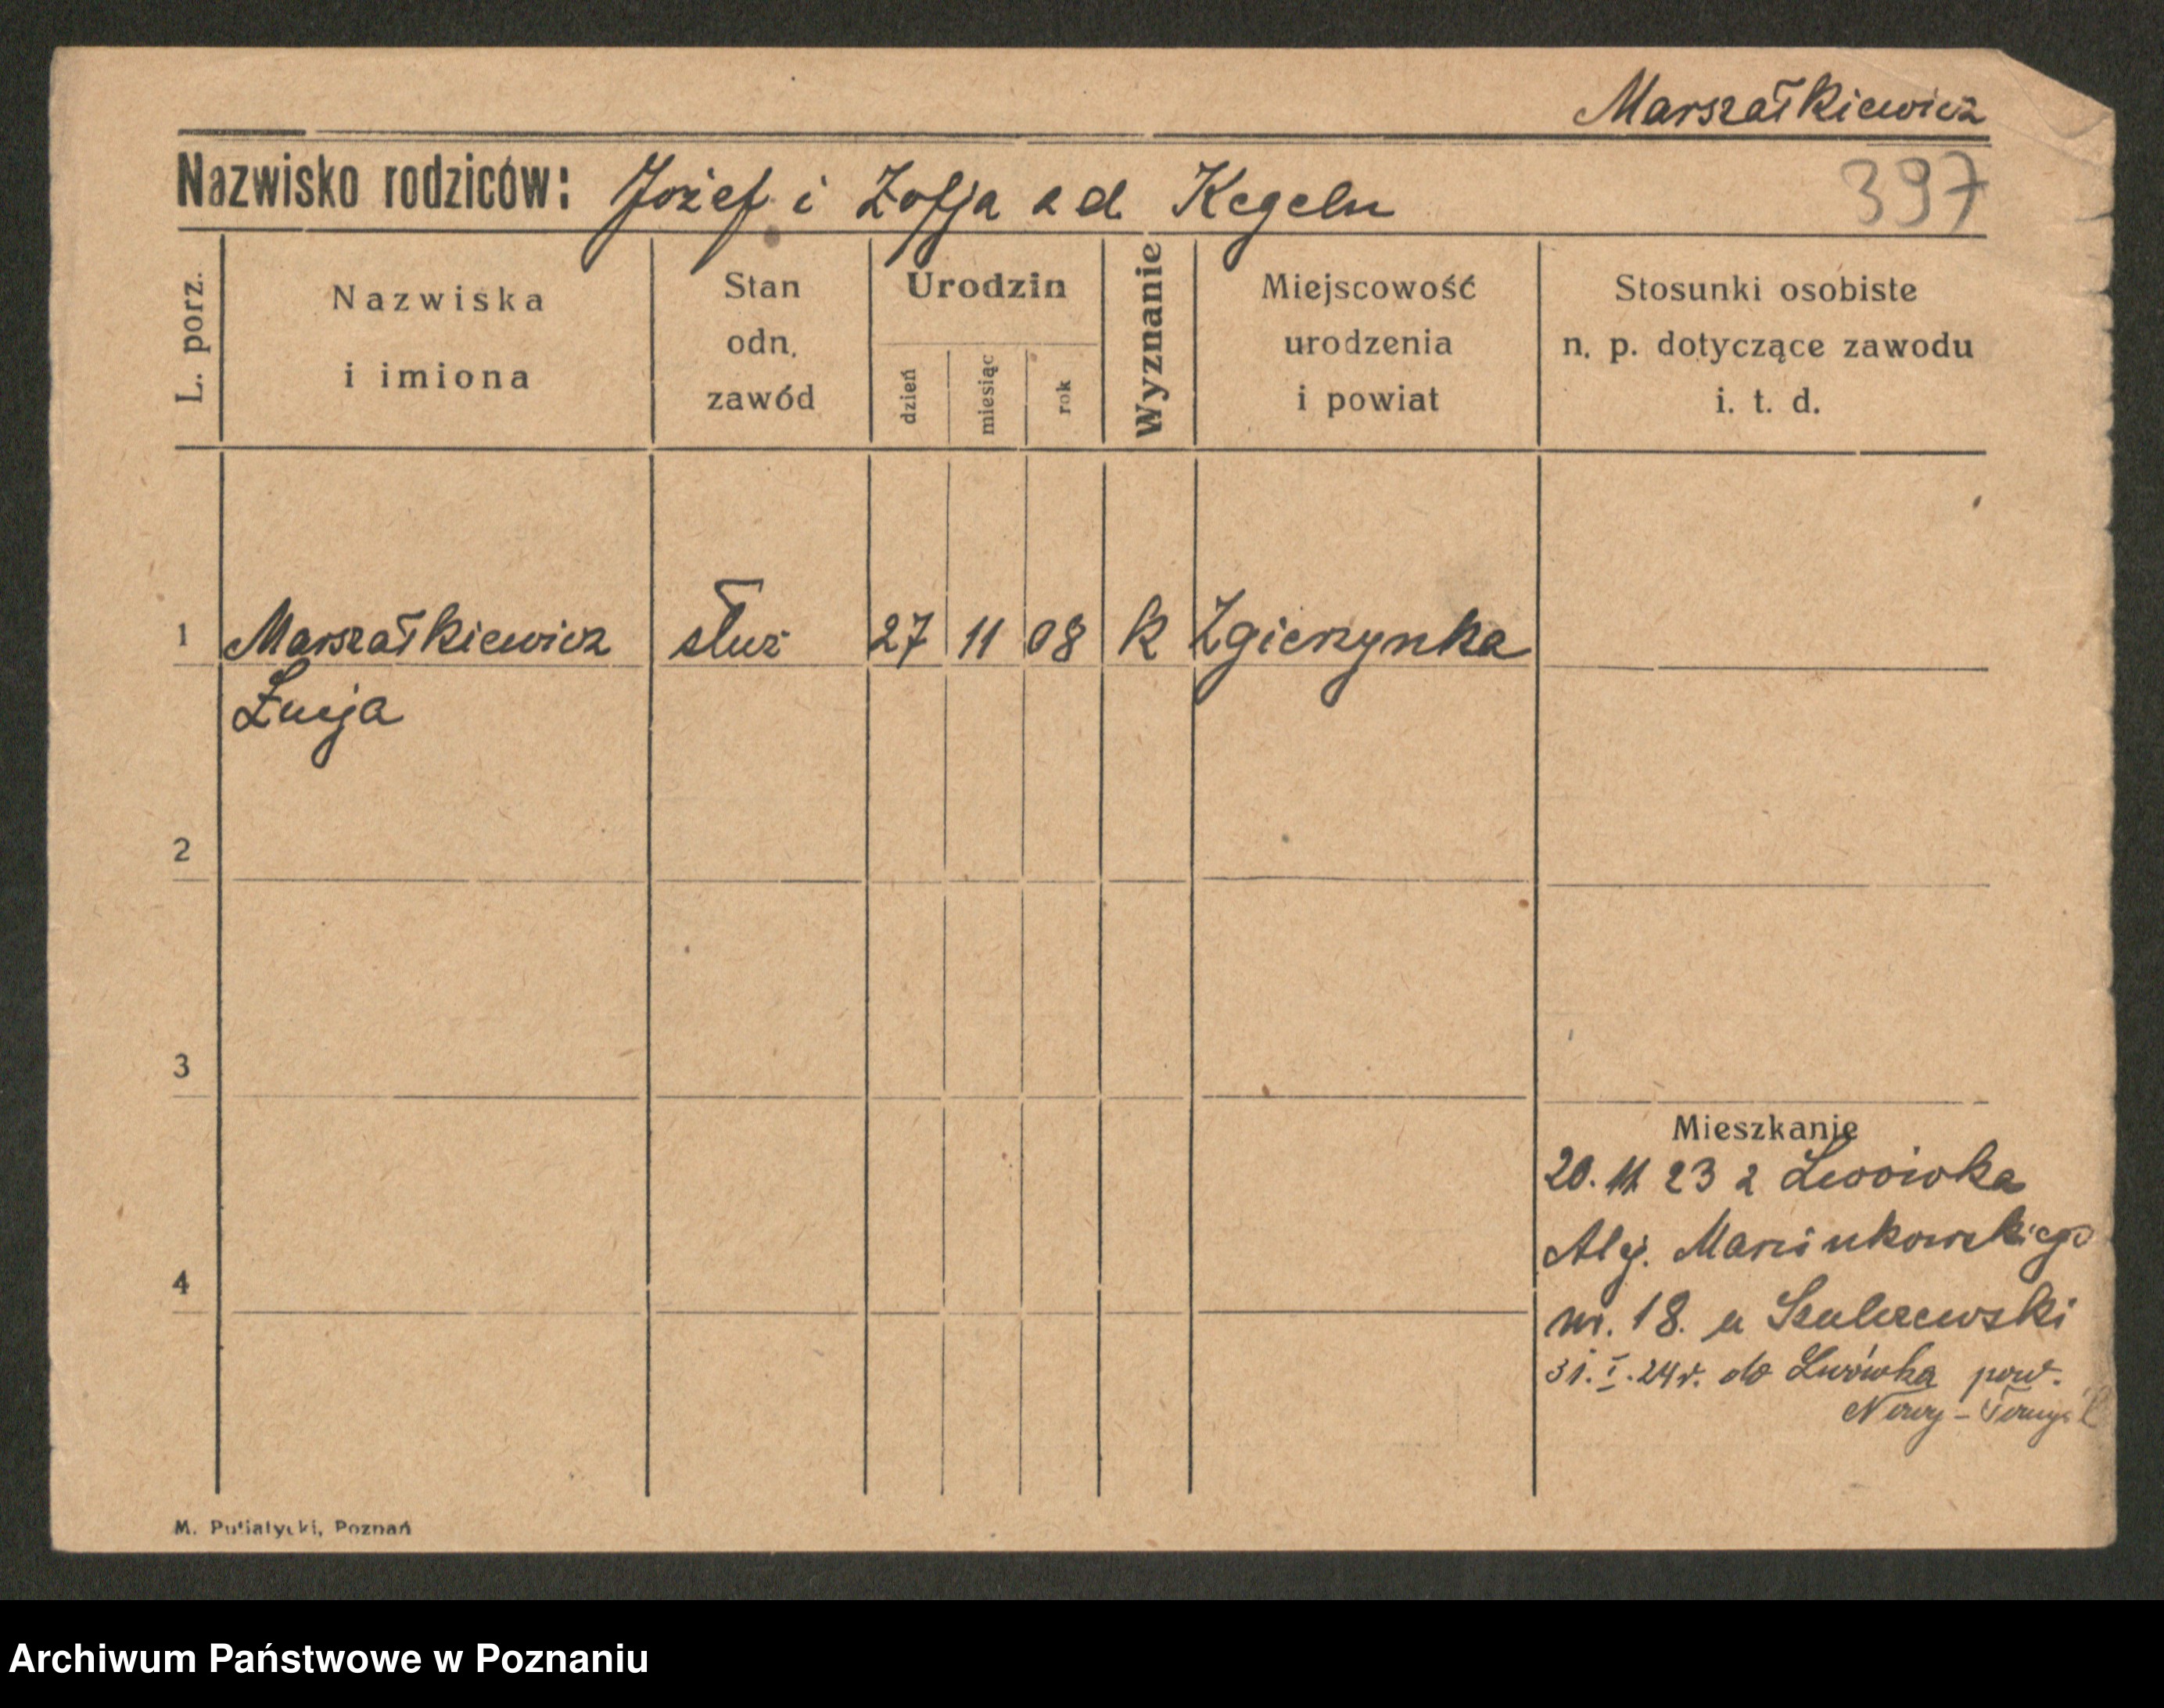 Marszałkiewicz
Nazwisko rodziców: Jozef i Zofja z d. Kegeln
397
L. porz.
Nazwiska
i imiona
Stan
odn.
zawód
Urodzin
dzień
miesiąc
rok
Wyznanie
Miejscowość
urodzenia
i powiat
Stosunki osobiste
n. p. dotyczące zawodu
i. t. d.
1 Marszałkiewicz służ 27 11 08 k Zgierzynka
Łucja
2
3
4
Mieszkanie
20. 11 23 z Lwówka
Alej. Marcinkowskiego
nr. 18. u Szulczewski
31. I. 24 r. do Lwówka pow.
Nowy-Tomyśl
M. Putiatycki, Poznań
Archiwum Państwowe w Poznaniu